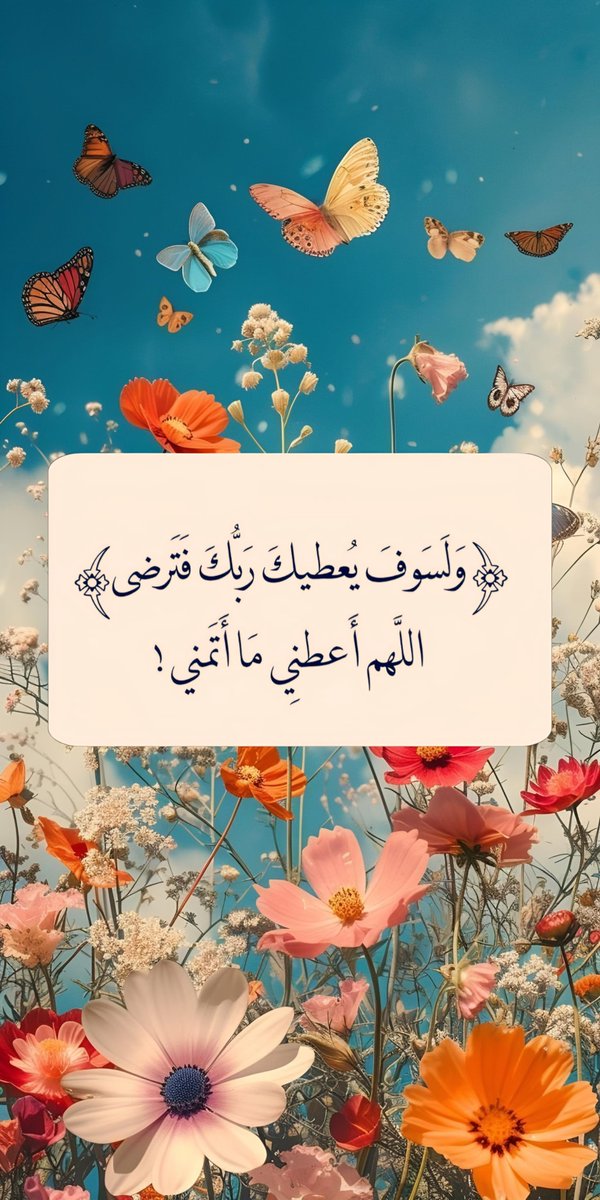 ﴿وَلَسَوفَ يُعطيكَ رَبُّكَ فَتَرضى﴾
اللَّهم أَعطنِي مَا أَتَمني !